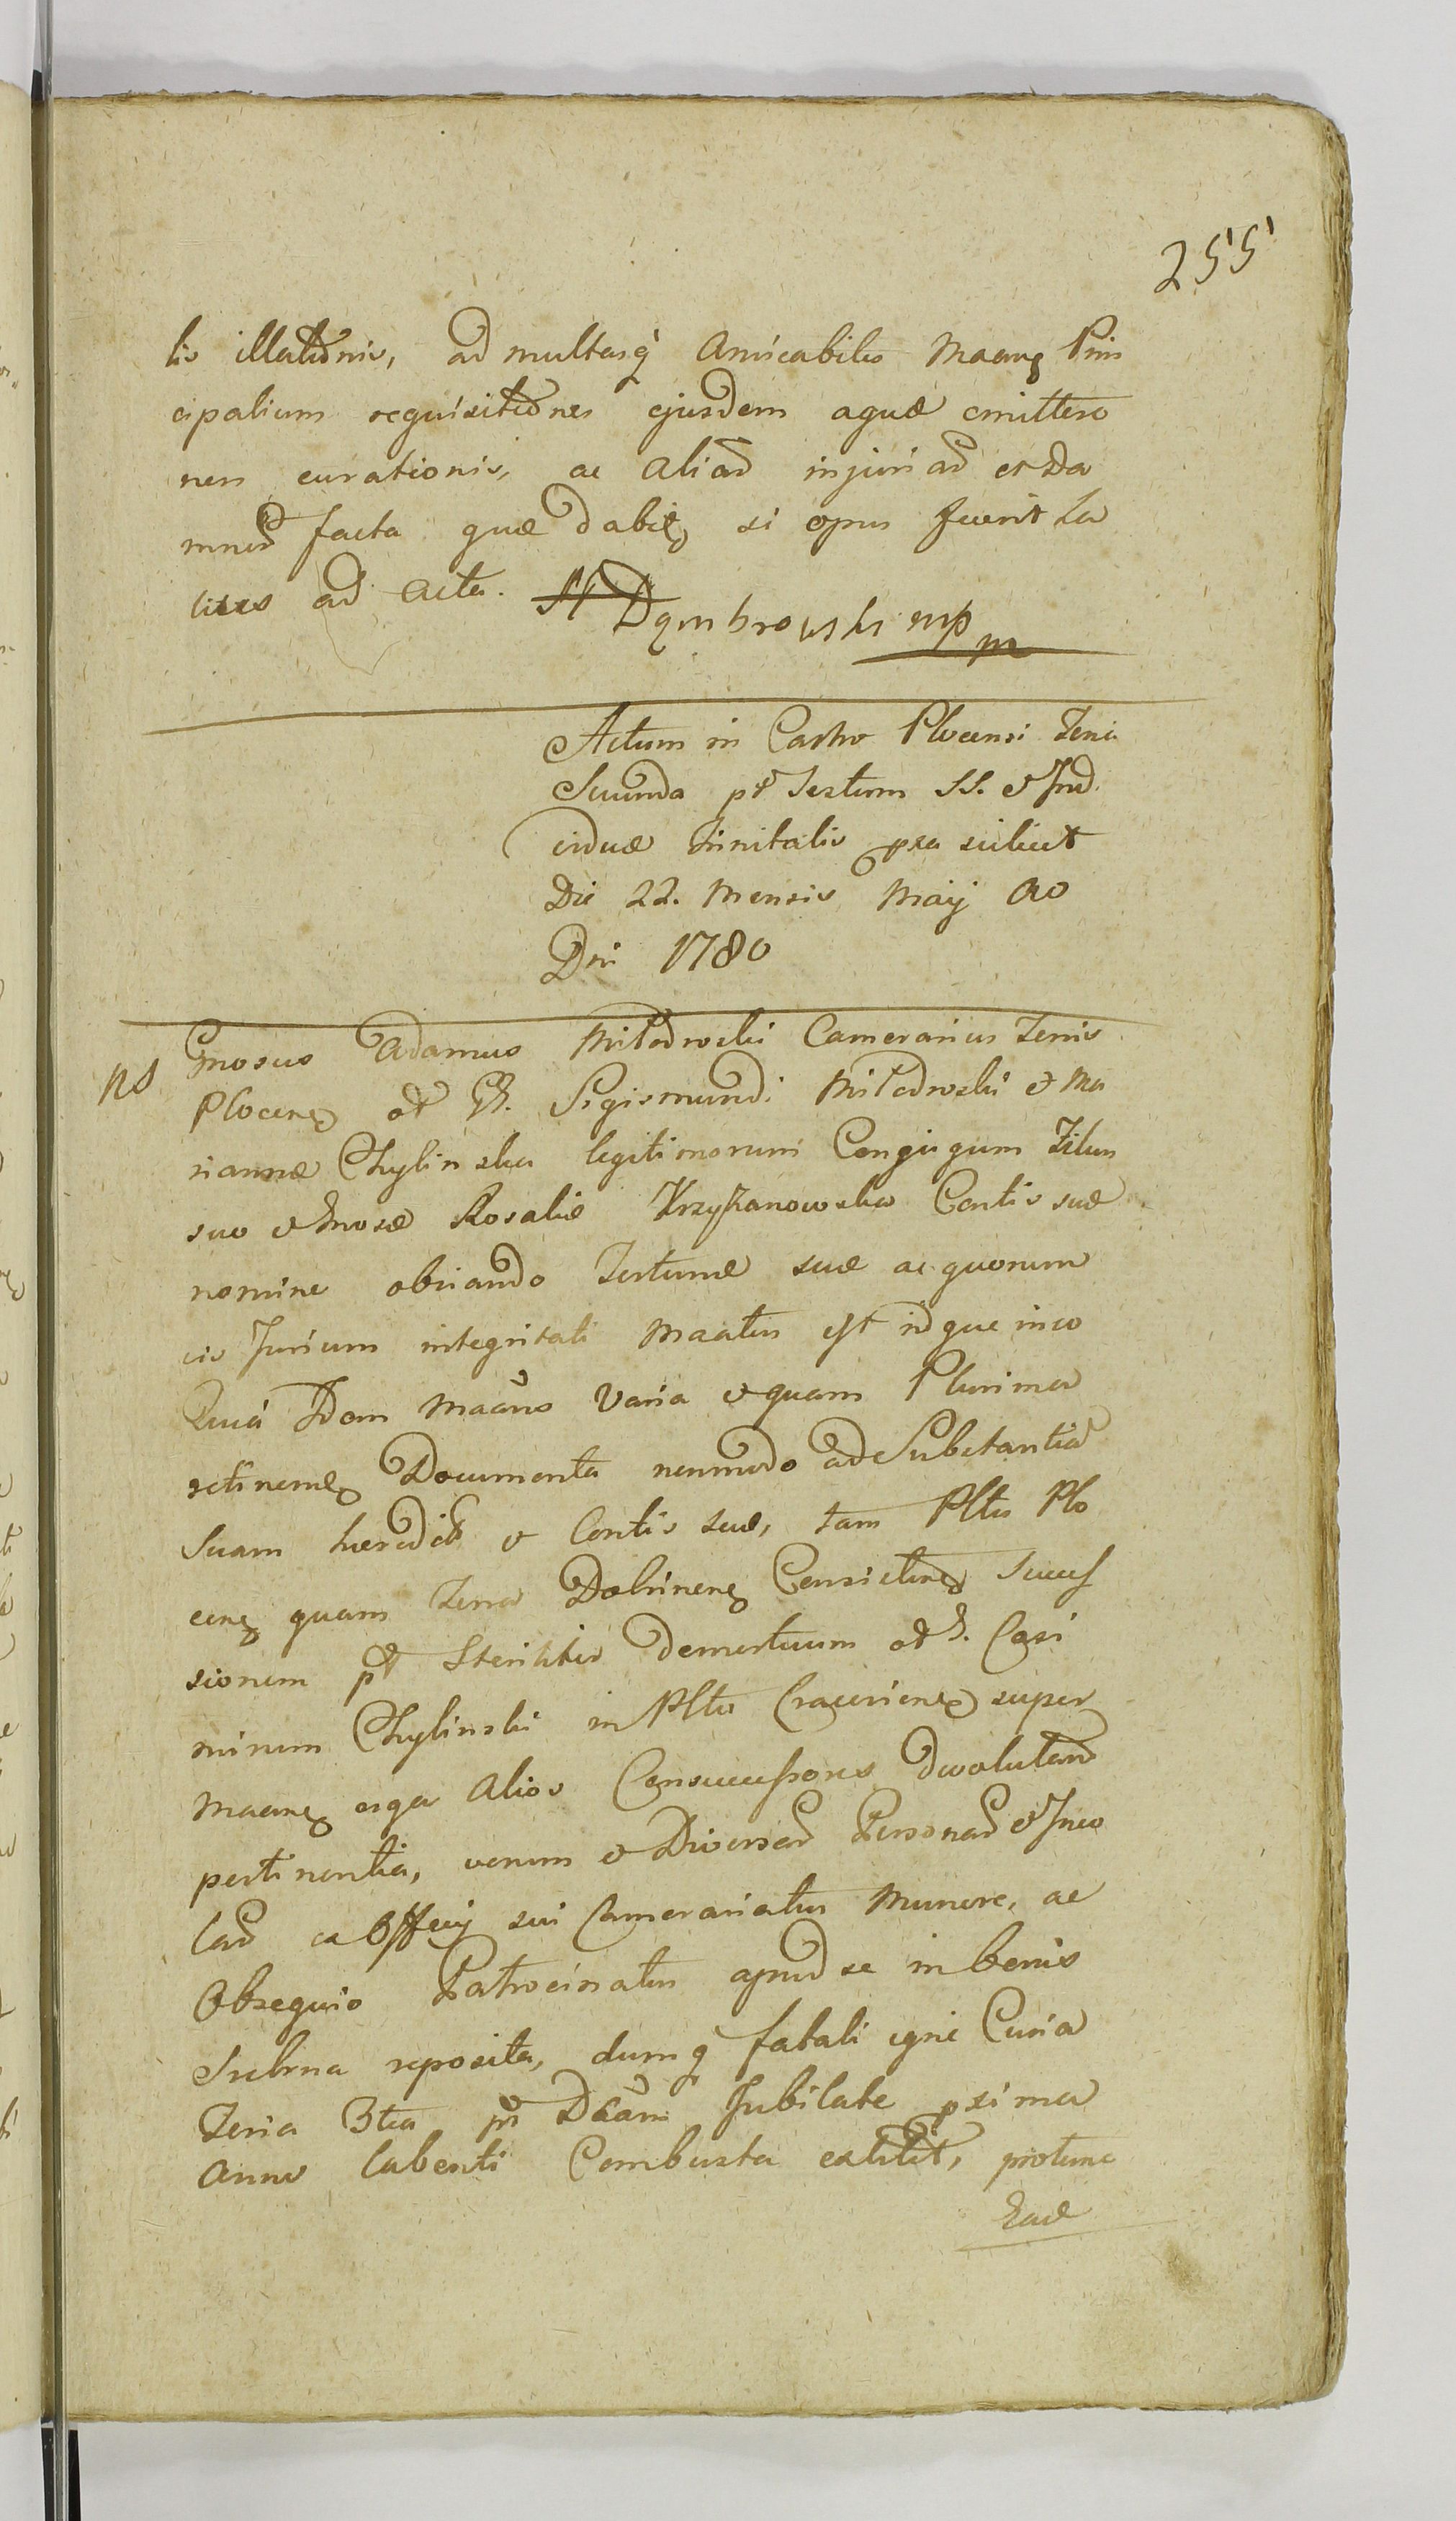 255
lis illationis, ad multasq̃ Amicabiles Maang Prin
cipalium requisitiones ejusdem aquæ emittere
nen curationis, ac Aliad injuriad et Da
mned facta quæ dabit, si opus fuerit La
tius ad Acta. Dąmbrowski mp
Actum in Castro Plocensi Feria
Secunda pt Festum SS. et Ind
iduæ Trinitatis pxa scilicet
Die 22. Mensis Maij Ao
Dni 1780
NS
Gnosus Adamus Miłodroski Camerarius Terris
Plocens ol G. Sigismundi Miłodroski et Ma
riannæ Chylinska legitimorum Conjugum Filius
suo et Gnosæ Rosaliæ Krzyżanowska Contis suæ
nomine obviando Fortunæ suæ ac quorum
vis Jurium integritati Maatus est idque in eo
Quia Idem Maans Varia et quam Plurima
retinens Documenta nonmodo ad Substantia
Suam heredit et Contis suæ, tam Pltu Plo
cens quam Terra Dobrinens Consisten Succes
sionem pt Steriliter demortuum ol G. Casi
mirum Chylinski in Pltu Cracoviens super
Maans erga Alios Consuccessores devolutam
pertinentia, verum et Diversad Personad et Inco
lad ex Officij sui Camerariatus Munere, ac
Obsequio Patrocinatus apud se in bonis
Srebrna reposita, dumq̃ fatali igne Curia
Feria 3tia pt Dcam Jubilate pxima
Anno labenti Combusta extitit, protunc
Eadē